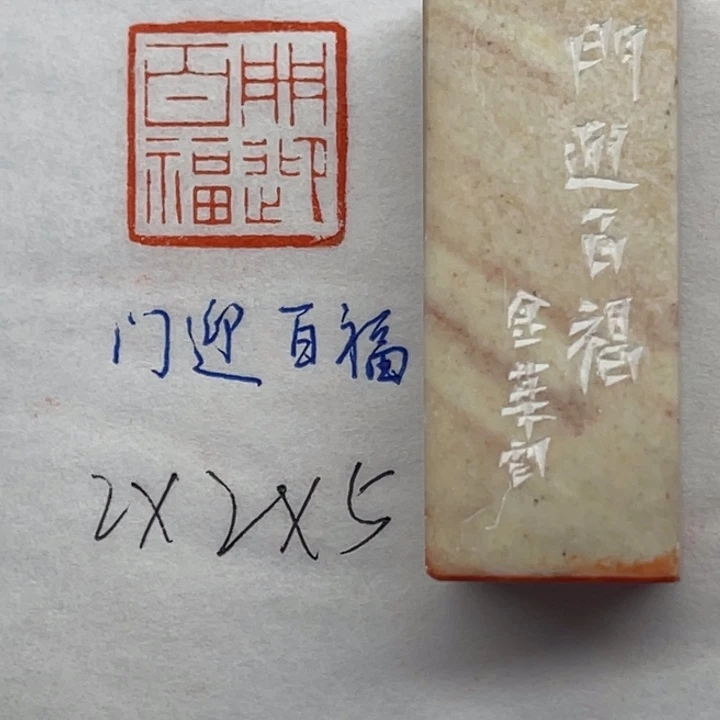 門迎
百福
门迎百福
2X2X5
門迎百福
金華